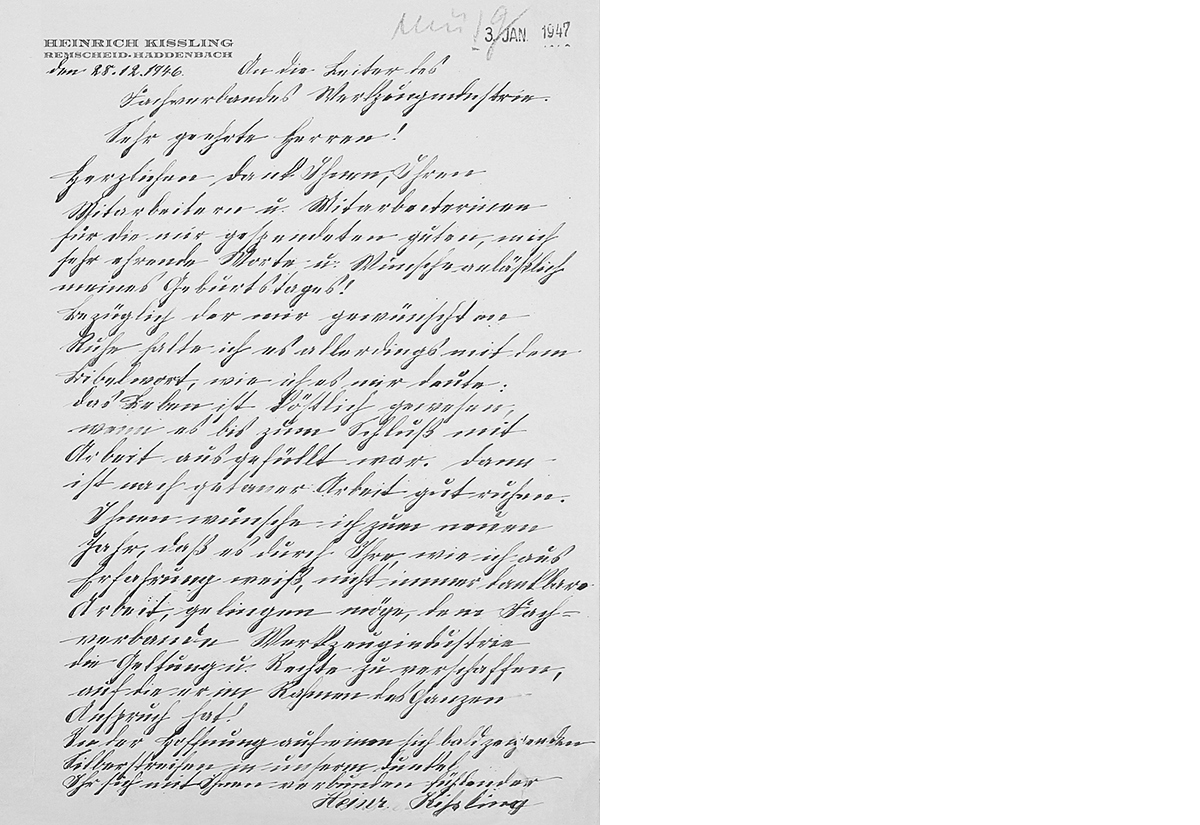 3. JAN. 1947
HEINRICH KISSLING
REMSCHEID-HADDENBACH
den 28.12.1946. An die Leiter des
Fachverbandes Werkzeugindustrie.
Sehr geehrte Herren!
Herzlichen Dank Ihnen, Ihren
Mitarbeitern u. Mitarbeiterinnen
für die mir gespendeten guten, mich
sehr ehrende Worte u. Wünsche anläßlich
meines Geburtstages!
Bezüglich der mir gewünschten
Ruhe halte ich es allerdings mit dem
Bibelwort, wie ich es mir deute:
das Leben ist köstlich gewesen,
wenn es bis zum Schluß mit
Arbeit ausgefüllt war. Dann
ist nach getaner Arbeit gut ruhen.
Ihnen wünsche ich zum neuen
Jahr, daß es durch Ihre, wie ich aus
Erfahrung weiß, nicht immer dankbare
Arbeit, gelingen möge, dem Fach-
verbande Werkzeugindustrie
die Geltung u. Rechte zu verschaffen,
auf die er im Rahmen des Ganzen
Anspruch hat!
In der Hoffnung auf einen sich bald zeigenden
Silberstreifen in unserm Dunkel
Ihr sich mit Ihnen verbunden fühlender
Heinr. Kissling